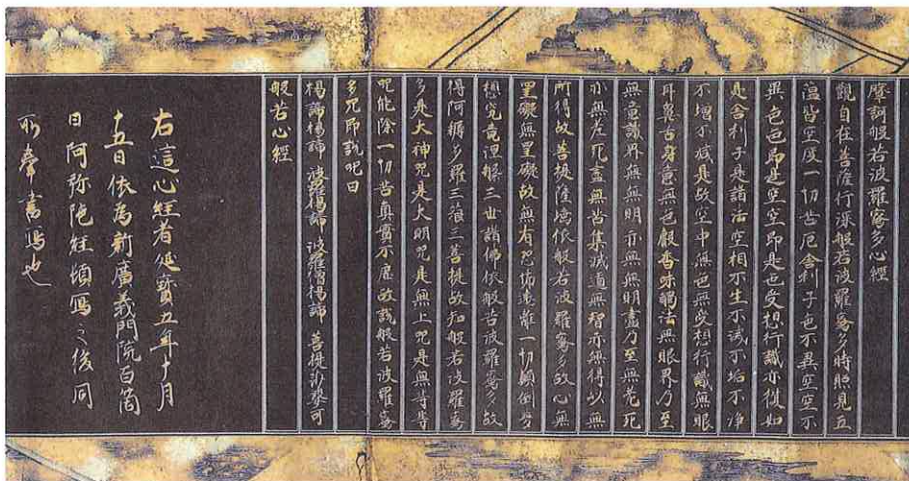 摩訶般若波羅蜜多心經
觀自在菩薩行深般若波羅蜜多時照見五
蘊皆空度一切苦厄舍利子色不異空空不
異色色即是空空即是色受想行識亦復如
是舍利子是諸法空相不生不滅不垢不淨
不增不減是故空中無色無受想行識無眼
耳鼻舌身意無色聲香味觸法無眼界乃至
無意識界無無明亦無無明盡乃至無老死
亦無老死盡無苦集滅道無智亦無得以無
所得故菩提薩埵依般若波羅蜜多故心無
罣礙無罣礙故無有恐怖遠離一切顛倒夢
想究竟涅槃三世諸佛依般若波羅蜜多故
得阿耨多羅三藐三菩提故知般若波羅蜜
多是大神咒是大明咒是無上咒是無等等
咒能除一切苦真實不虛故說般若波羅蜜
多咒即說咒曰
揭諦揭諦 波羅揭諦 波羅僧揭諦 菩提娑婆可
般若心經
右這心経者延寳五年十月
十五日依為新廣義門院百箇
日阿弥陀経頓寫之後同
所奉書寫也